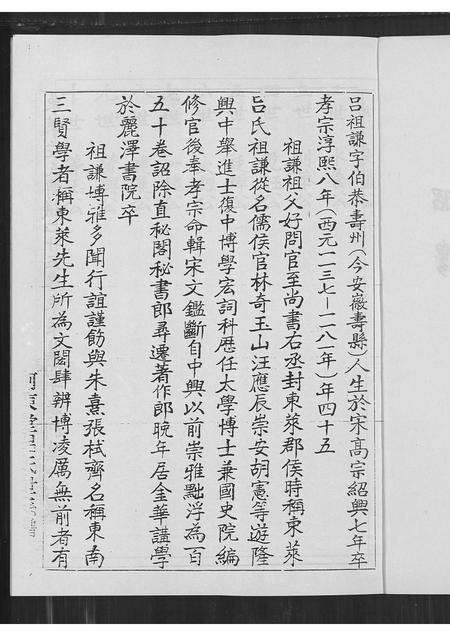 呂祖謙字伯恭壽州(今安徽壽縣)人生於宋高宗紹興七年卒
孝宗淳熙八年(西元一一三七—一一八一年)年四十五
祖謙祖父好問官至尚書右丞封東萊郡侯時稱東萊
呂氏祖謙從名儒侯官林奇玉山汪應辰崇安胡憲等遊隆
興中舉進士復中博學宏詞科歷任太學博士兼國史院編
修官後奉孝宗命輯宋文鑑斷自中興以前崇雅黜浮為百
五十卷詔除直秘閣秘書郎尋遷著作郎晚年居金華講學
於麗澤書院卒
祖謙博雅多聞行誼謹飭與朱熹張栻齊名稱東南
三賢學者稱東萊先生所為文閎肆辨博凌厲無前者有